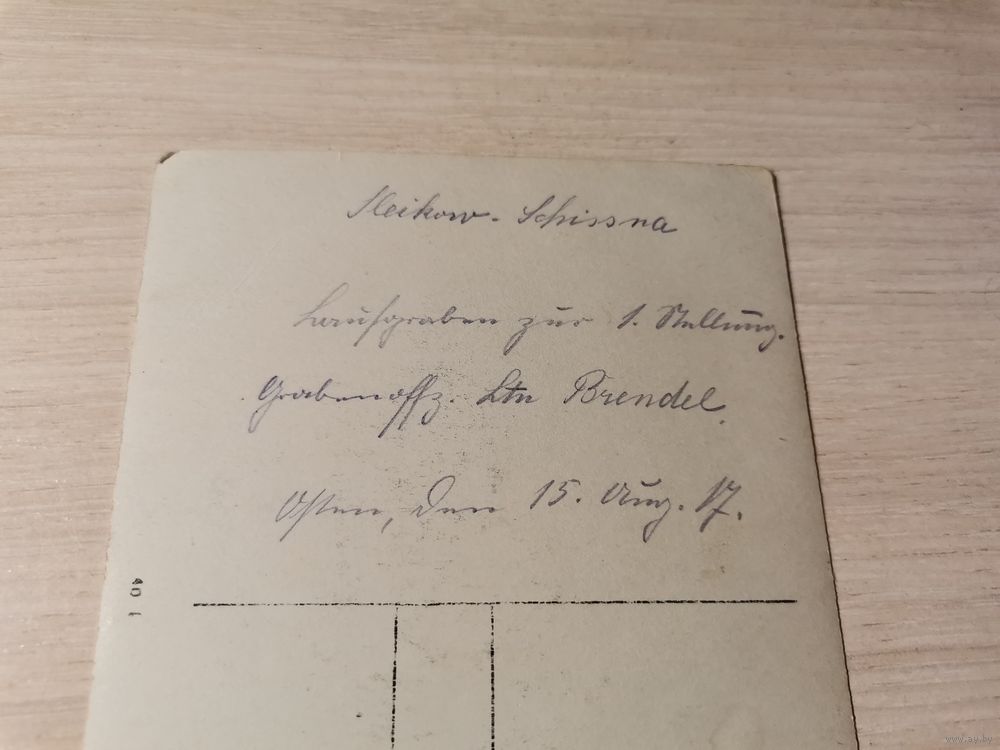 Schissna
Laufgraben zur 1. Stellung.
Grabenoffz. Ltn Brendel.
Osten, den 15. Aug. 17.
40
www.ay.by